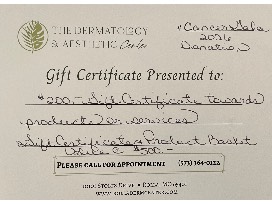 THE DERMATOLOGY
& AESTHETIC Center
*Cancer Gala
2026
Donation
Gift Certificate Presented to:
$200.- Gift Certificate towards
products or services
*Gift Certificate & Product Basket
Value $500.-
PLEASE CALL FOR APPOINTMENT